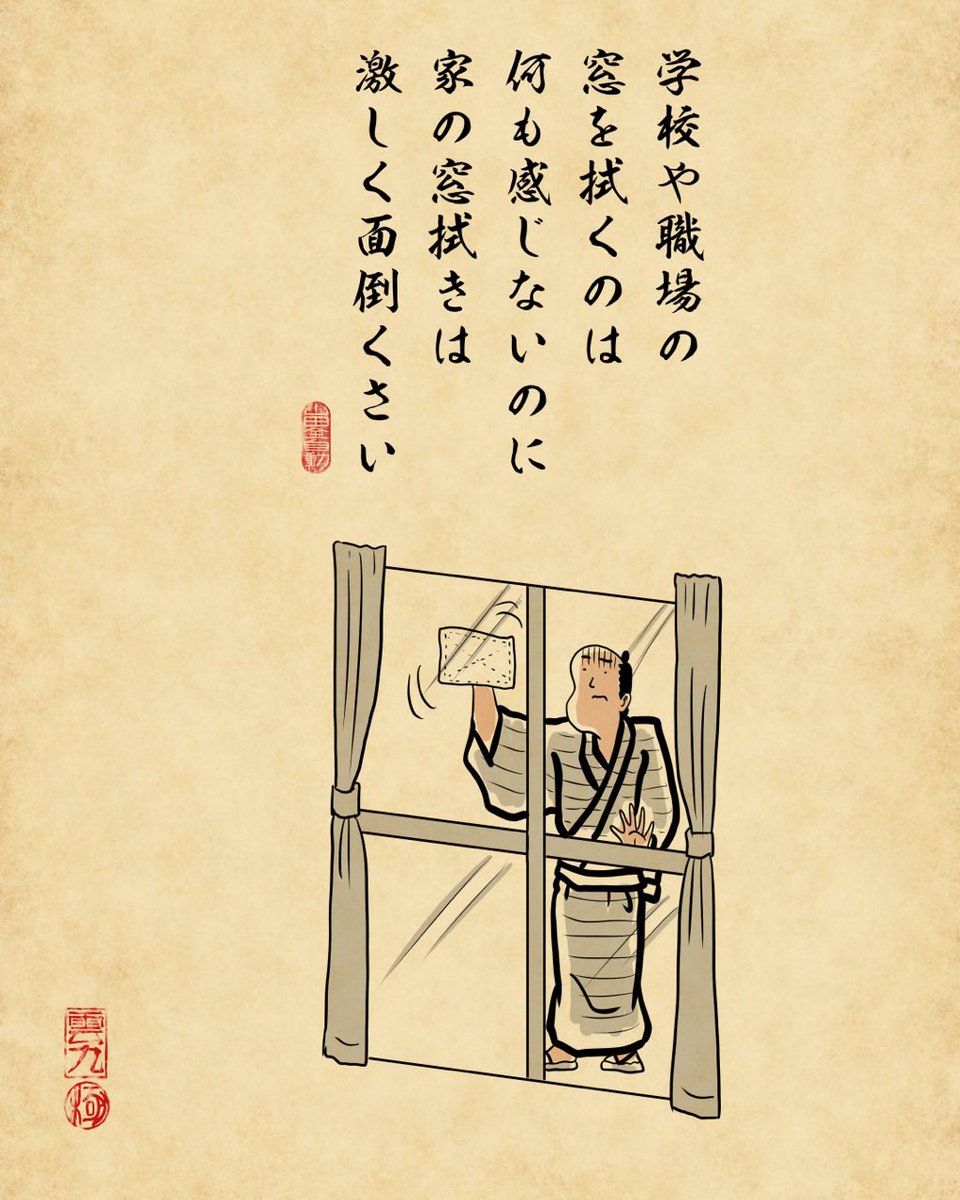 学校や職場の
窓を拭くのは
何も感じないのに
家の窓拭きは
激しく面倒くさい